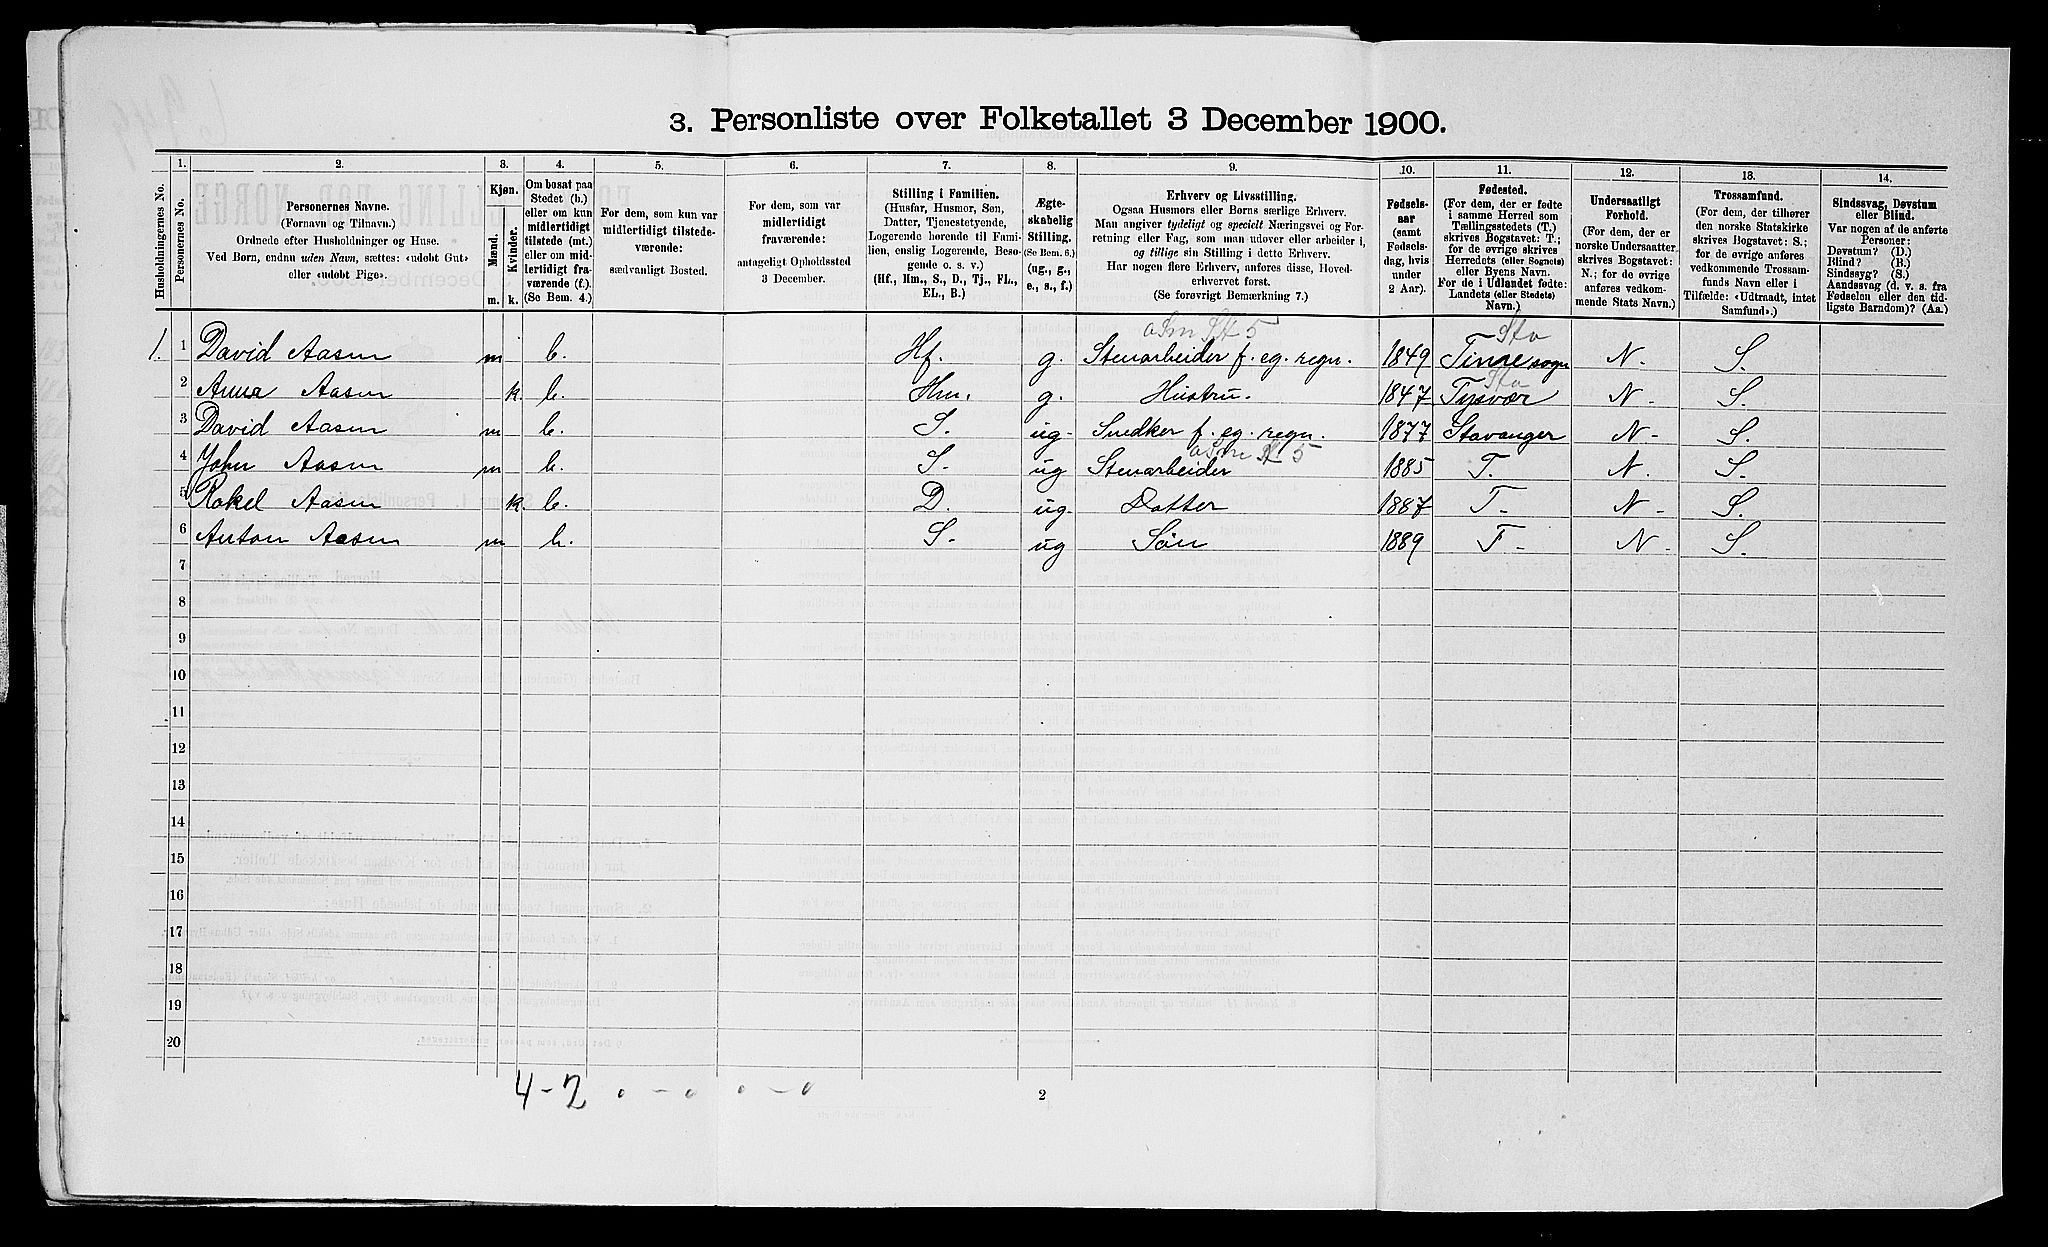 3. Personliste over Folketallet 3 December 1900.
1. 2. 3. 4. 5. 6. 7. 8. 9. 10. 11. 12. 13. 14.
Husholdningernes No.
Personernes No.
Personernes Navne.
(Fornavn og Tilnavn.)
Ordnede efter Husholdninger og Huse.
Ved Børn, endnu uden Navn, sættes: «udøbt Gut»
eller «udøbt Pige».
Kjøn.
Mænd.
Kvinder.
m. k.
Om bosat paa
Stedet (b.)
eller om kun
midlertidigt
tilstede (mt.)
eller om mid-
lertidigt fra-
værende (f.).
(Se Bem. 4.)
For dem, som kun var
midlertidigt tilstede-
værende:
sædvanligt Bosted.
For dem, som var
midlertidigt
fraværende:
antageligt Opholdssted
3 December.
Stilling i Familien.
(Husfar, Husmor, Søn,
Datter, Tjenestetyende,
Logerende hørende til Fami-
lien, enslig Logerende, Besø-
gende o. s. v.)
(Hf., Hm., S., D., Tj., FL.,
EL., B.)
Ægte-
skabelig
Stilling.
(Se Bem. 6.)
(ug., g.,
e., s., f.)
Erhverv og Livsstilling.
Ogsaa Husmors eller Børns særlige Erhverv.
Man angiver tydeligt og specielt Næringsvei og For-
retning eller Fag, som man udøver eller arbeider i,
og tillige sin Stilling i dette Erhverv.
Har nogen flere Erhverv, anføres disse, Hoved-
erhvervet først.
(Se forøvrigt Bemærkning 7.)
Fødsels-
aar
(samt
Fødsels-
dag, hvis
under
2 Aar).
Fødested.
(For dem, der er fødte
i samme Herred som
Tællingsstedets (T.)
skrives Bogstavet: T.;
for de øvrige skrives
Herredets (eller Sognets)
eller Byens Navn.
For de i Udlandet fødte:
Landets (eller Stedets)
Navn.)
Undersaatligt
Forhold.
(For dem, der er
norske Undersaatter,
skrives Bogstavet:
N.; for de øvrige
anføres vedkom-
mende Stats Navn.)
Trossamfund.
(For dem, der tilhører
den norske Statskirke
skrives Bogstavet: S.;
for de øvrige anføres
vedkommende Trossam-
funds Navn eller i
Tilfælde: «Udtraadt, intet
Samfund».)
Sindssvag, Døvstum
eller Blind.
Var nogen af de anførte
Personer:
Døvstum? (D.)
Blind? (B.)
Sindssyg? (S.)
Aandssvag (d. v. s. fra
Fødselen eller den tid-
ligste Barndom)? (Aa.)
5 Sta
1. 1 David Aasen m b. Hf. g. Stenarbeider f. eg. regn. 1849 sogn N. S.
Sta
2 Anna Aasen k. b. Hm. g. Hustru. 1847 Tysvær N. S.
3 David Aasen m b. S. ug. Snedker f. eg. regn. 1877 Stavanger N. S.
5
4 John Aasen m b. S. ug Stenarbeider 1885 T. N. S.
5 Rakel Aasen k. b. D. ug. Datter 1887 T. N. S.
6 Anton Aasen m b. S. ug Søn 1889 T. N. S.
7
8
9
10
11
12
13
14
15
16
17
18
19
20
4 - 2 . - . . - .
2